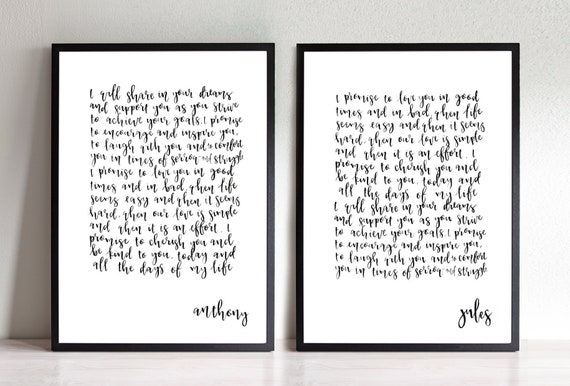 I will share in your dreams
and support you as you strive
to achieve your goals. I promise
to encourage and inspire you,
to laugh with you and to comfort
you in times of sorrow and struggle
I promise to love you in good
times and in bad, when life
seems easy and when it seems
hard, when our love is simple
and when it is an effort. I
promise to cherish you and
be kind to you, today and
all the days of my life
anthony
I promise to love you in good
times and in bad, when life
seems easy and when it seems
hard, when our love is simple
and when it is an effort. I
promise to cherish you and
be kind to you, today and
all the days of my life
I will share in your dreams
and support you as you strive
to achieve your goals. I promise
to encourage and inspire you,
to laugh with you and to comfort
you in times of sorrow and struggle
jules